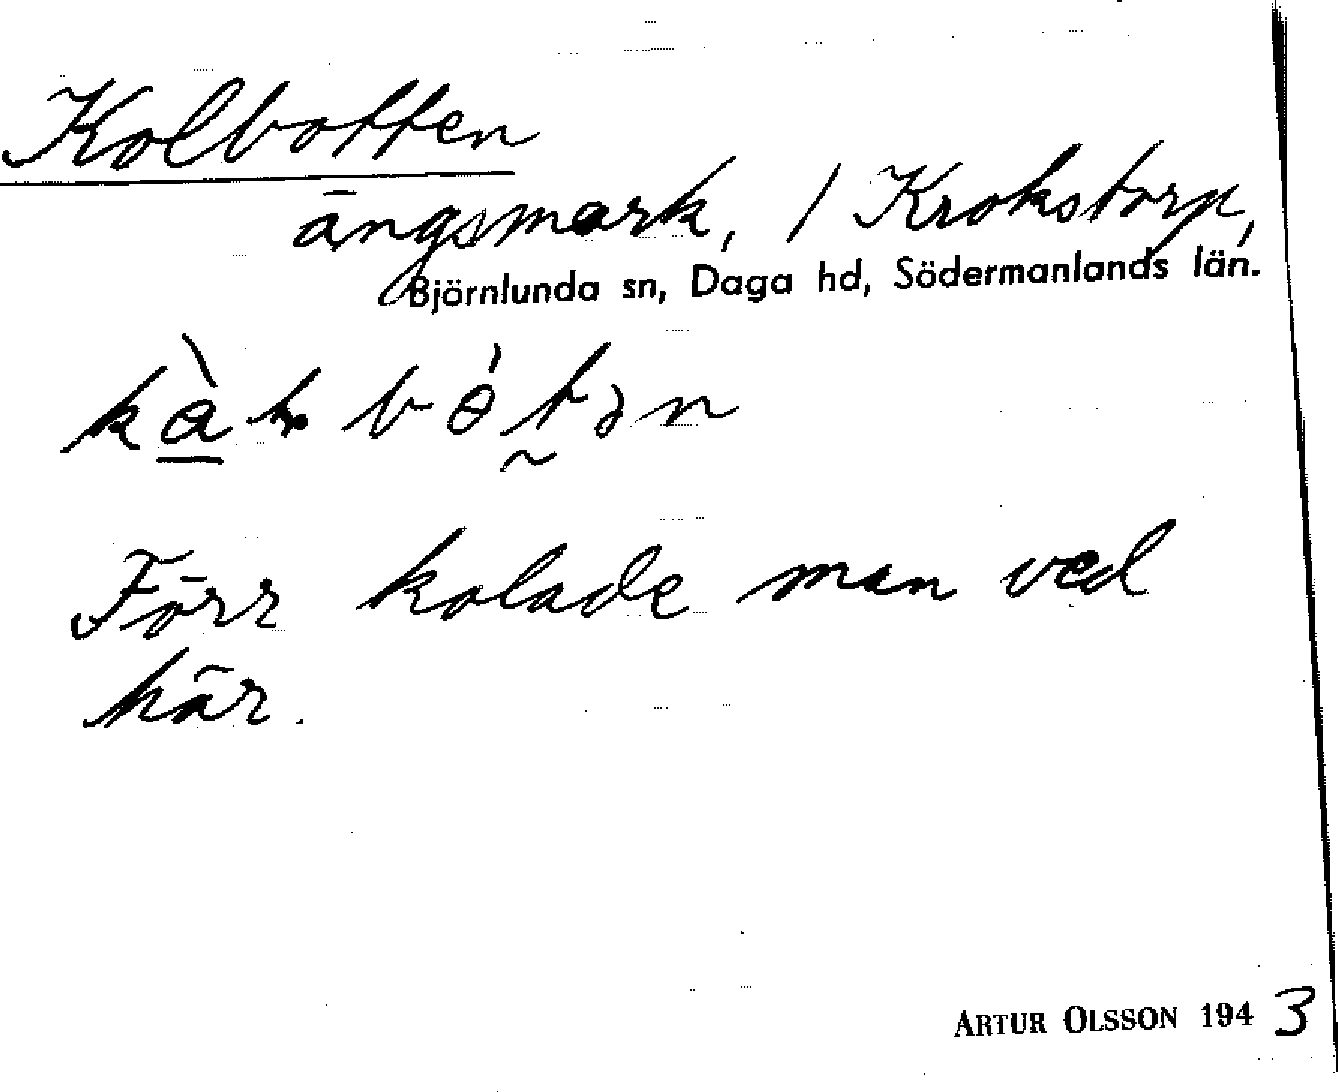 Kolbotten
ängsmark, / Krokstorp,
Björnlunda sn, Daga hd, Södermanlands län.
Förr kolade man ved
här.
ARTUR OLSSON 1943